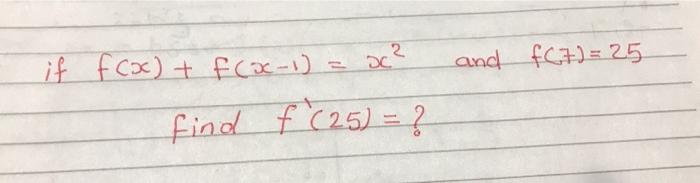 if f(x) + f(x-1) = x² and f(7) = 25
find f`(25) = ?